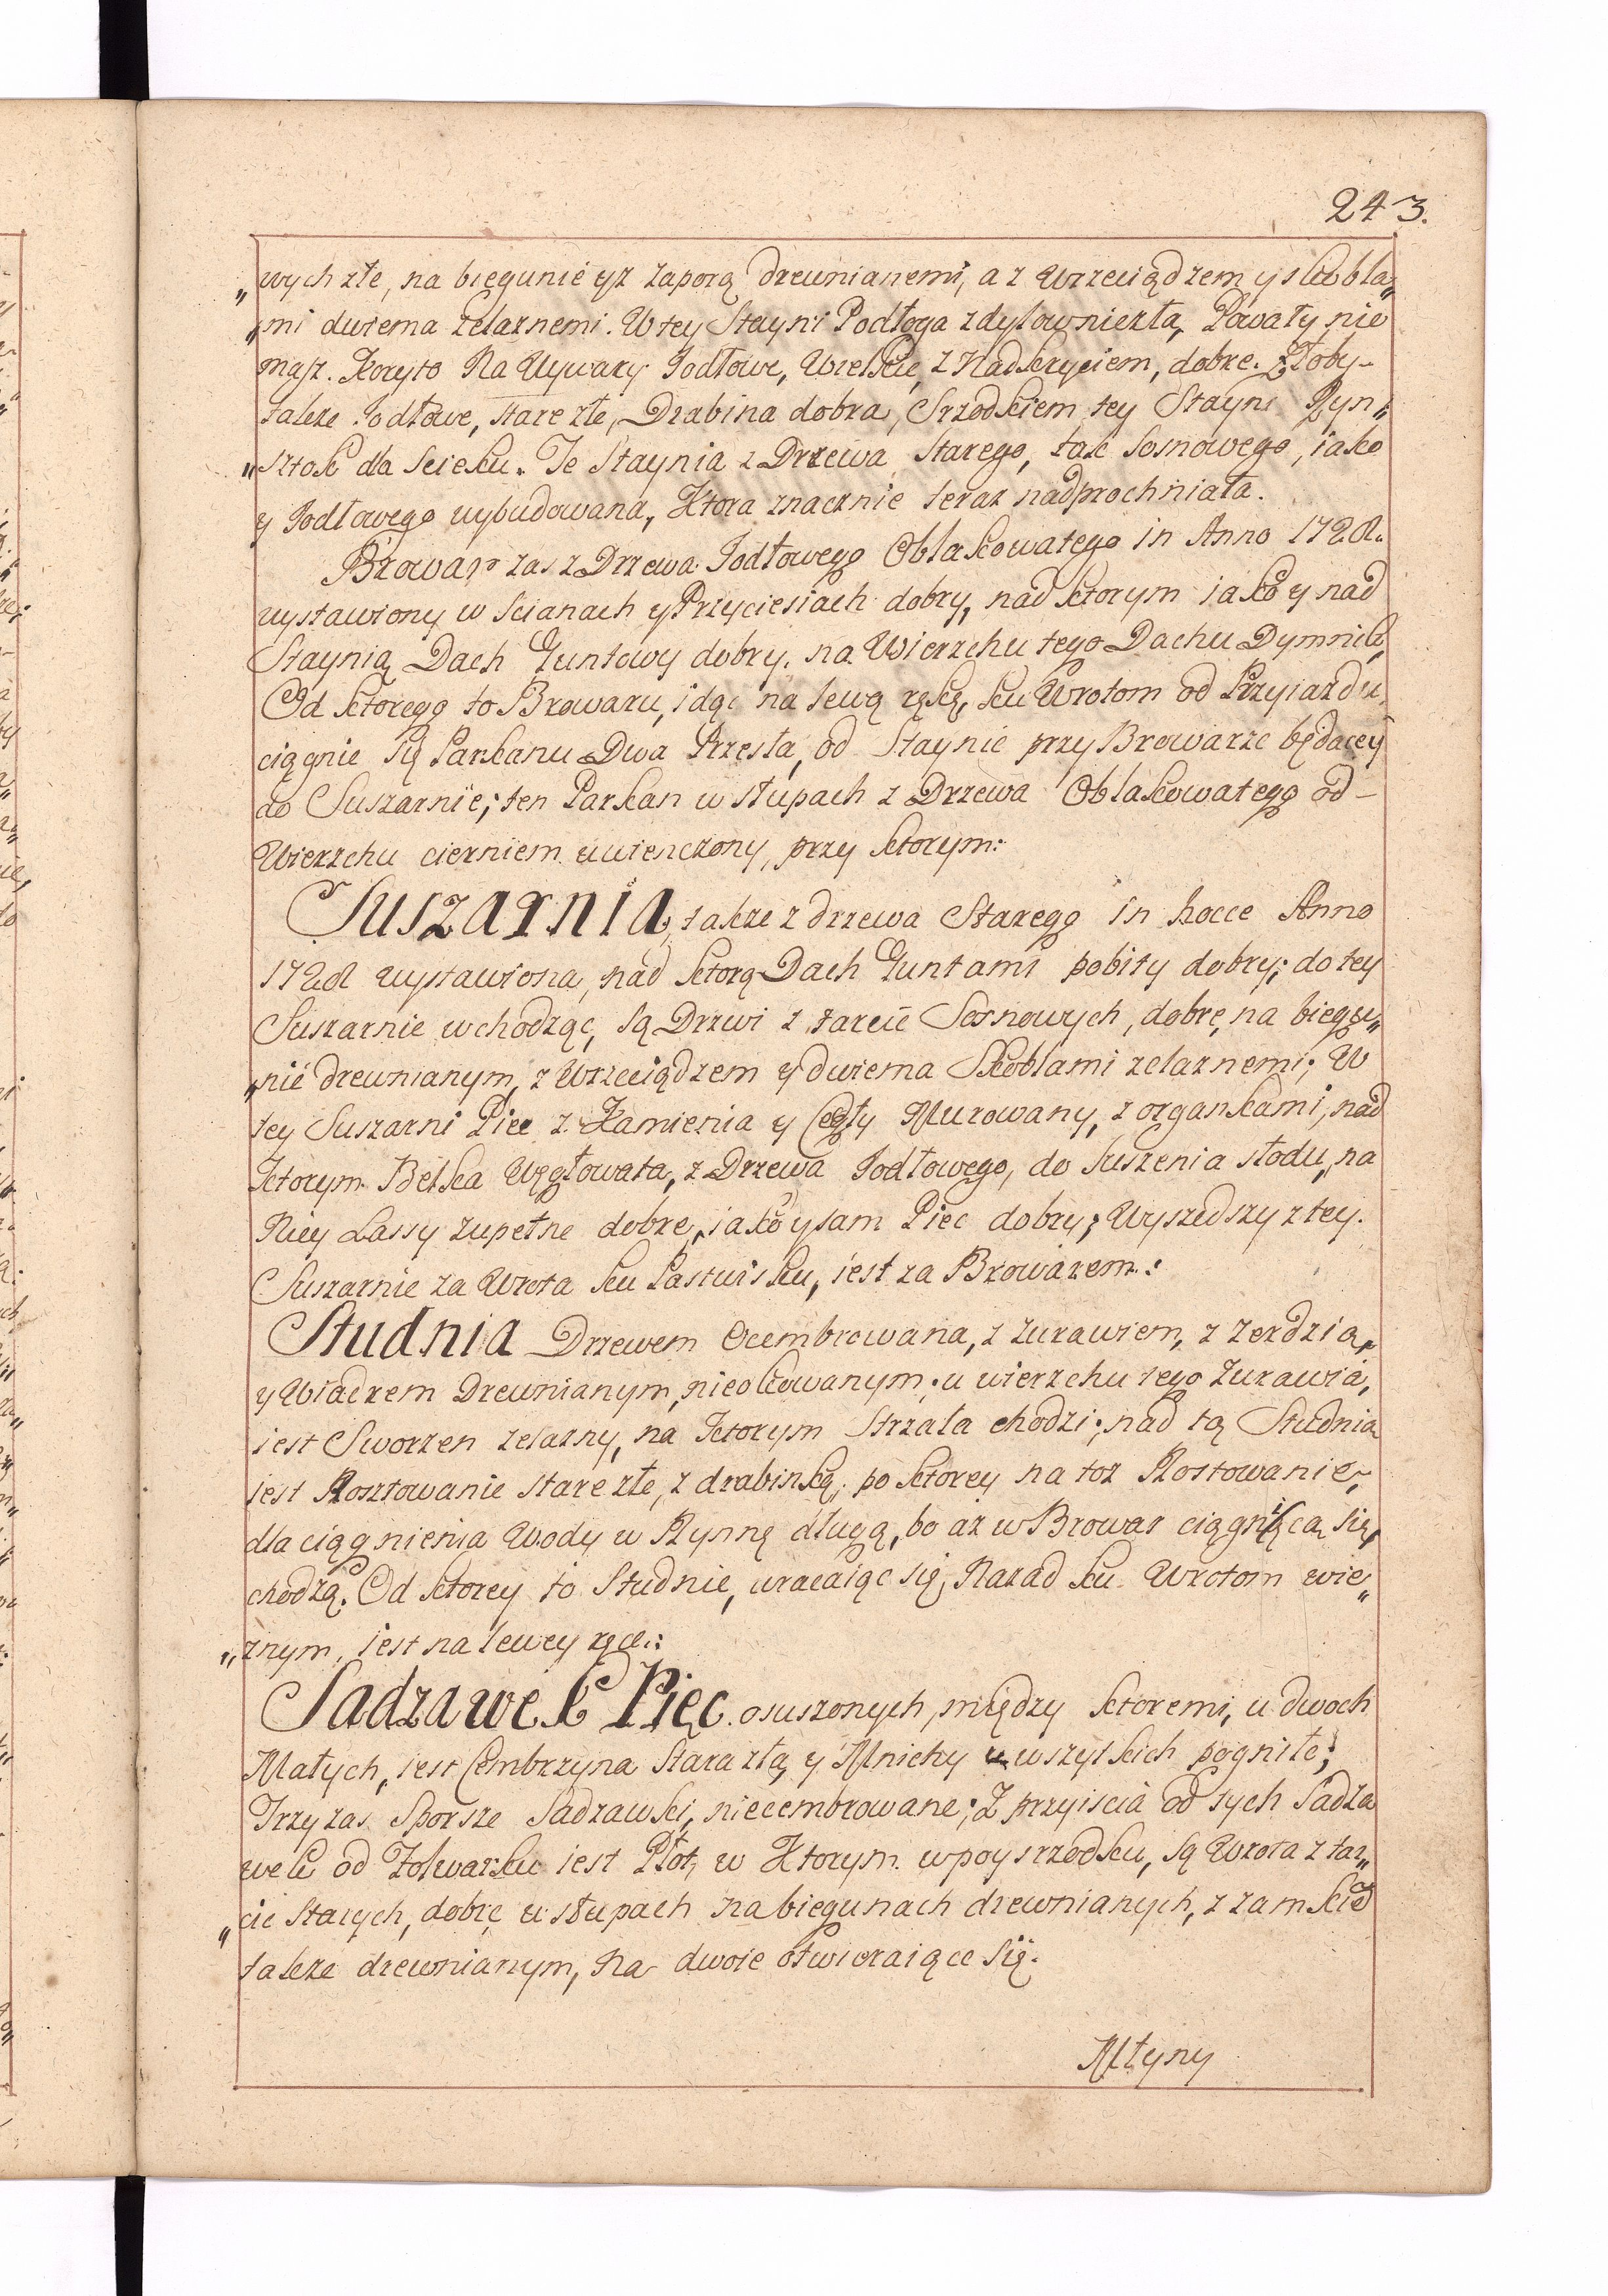 243.
„wych złe, na biegunie y z zaporą drewnianemi, a z Wrzeciądzem y skobla„
„mi dwiema żelaznemi. W tey Stayni Podłoga z dylow niezła, Powały nie
masz. Koryto Na Wywary Jodłowe, Wielkie, z Nadkryciem, dobre. Złoby-
także Jodłowe, stare złe, Drabina dobra, Srzodkiem tey Stayni Ryn„
„sztok dla scieku. Te Staynia z Drzewa Starego, tak Sosnowego, iako
y Jodłowego wybudowana, Ktora znacznie teraz nadprochniała.
Browar zas z Drzewa Jodłowego Oblakowatego in Anno 1728.
wystawiony w Scianach y Przyciesiach dobry, nad ktorym iako y nad
Staynią Dach Guntowy dobry, na Wierzchu tego Dachu Dymnik,
Od ktorego to Browaru, idąc na lewą rękę, ku Wrotom od Przyiazdu,
ciągnie się Parkanu Dwa Przęsła, od Staynie przy Browarze będącey
do Suszarnie; ten Parkan w słupach z Drzewa Oblakowatego od-
Wierzchu cierniem uwienczony, przy ktorym:
Suszarnia, także z drzewa Starego in hocce Anno
1728 wystawiona, nad ktorą Dach Guntami pobity dobry; do tey
Suszarnie wchodząc, są Drzwi z tarcic Sosnowych, dobre, na biegu„
„nie drewnianym, z Wrzeciądzem y dwiema Skoblami zelaznemi; W
tey Suszarni Piec z Kamienia y Cegły Murowany, z organkami, nad
ktorym Belka Węgłowata, z Drzewa Jodłowego, do suszenia słodu, na
Niey Lassy zupełne dobre, iako y sam Piec dobry; Wyszedszy z tey.
Suszarnie za Wrota ku Pastwisku, iest za Browarem:
Studnia Drzewem Ocembrowana, z zurawiem, z zerdzią,
y Wiadrem Drewnianym, nieokowanym; u wierzchu tego Zurawia,
iest Sworzen zelazny, na ktorym Strzała chodzi; nad tą Studnią
iest Rosztowanie stare złe, z drabinką, po ktorey na toz Rostowanie,
dla ciągnienia Wody w Rynnę długą, bo aż w Browar ciągniącą się,
chodzą. Od ktorey to Studnie, wracaiąc się, Nazad ku Wrotom wie„
„znym, iest na lewey ręce:
Sadzawek Pięc osuszonych, między ktoremi, u dwoch
Małych, iest Cembrzyna Stara zła, y Mnichy u wszytkich pogniłe;
Trzy zas Sporsze Sadzawki, niecembrowane; Z przyiscia od tych Sadza
wek od Folwarku iest Płot, w Ktorym wpoysrzodku, są Wrota z tar„
„cic Starych, dobre w słupach na biegunach drewnianych, z zamkiẽ
także drewnianym, na dwoie otwieraiące się.
Młyny